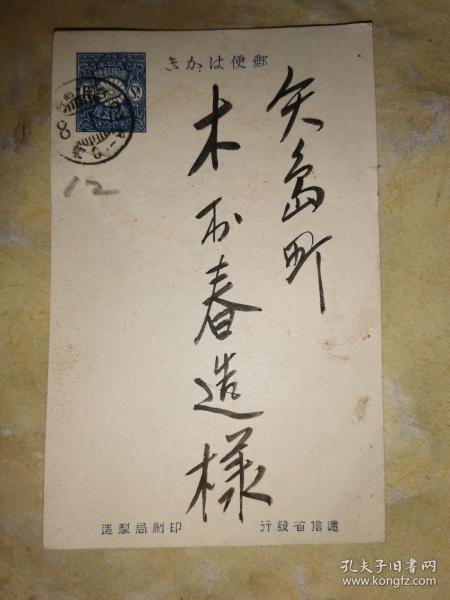 郵便はかき
矢島町
木村春造様
逓信省發行
印刷局製造
12
孔夫子旧书网
www.kongfz.com